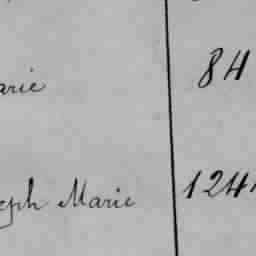 arie 84
eph Marie 124